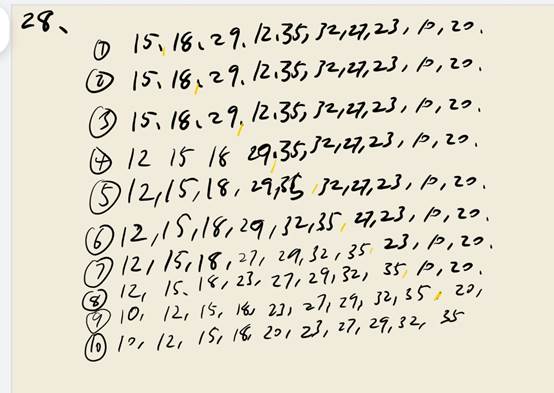 28、
① 15、18、29、12、35, 32, 27, 23, 10, 20.
② 15、18, 29、12、35, 32, 27, 23, 10, 20.
③ 15、18、29, 12、35, 32, 27, 23, 10, 20.
④ 12 15 18 29、35, 32, 27, 23, 10, 20.
⑤ 12, 15, 18, 29, 35, 32, 27, 23, 10, 20.
⑥ 12, 15, 18, 29, 32, 35, 27, 23, 10, 20.
⑦ 12, 15, 18, 27, 29, 32, 35 23, 10, 20.
⑧ 12, 15、18, 23, 27, 29, 32, 35, 10, 20.
⑨ 10, 12, 15, 18, 23, 27, 29, 32, 35, 20,
⑩ 10, 12, 15, 18, 20, 23, 27, 29, 32, 35